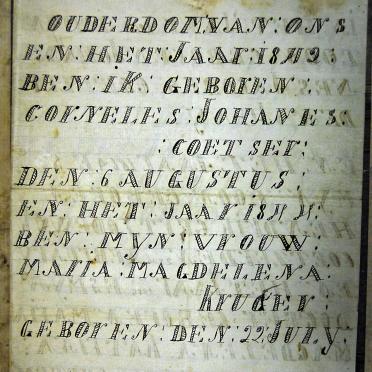 OUDERDOM VAN: ONS
EN: HET: JAAR
BEN: IK GEBOREN:
CORNELES: JOHANES:
: COETSER:
DEN: 6 AUGUSTUS;
EN: HET: JAAR
BEN: MYN: VROUW:
MARIA: MAGDELENA:
KRUGER:
GEBOREN: DEN: 22 JULY: